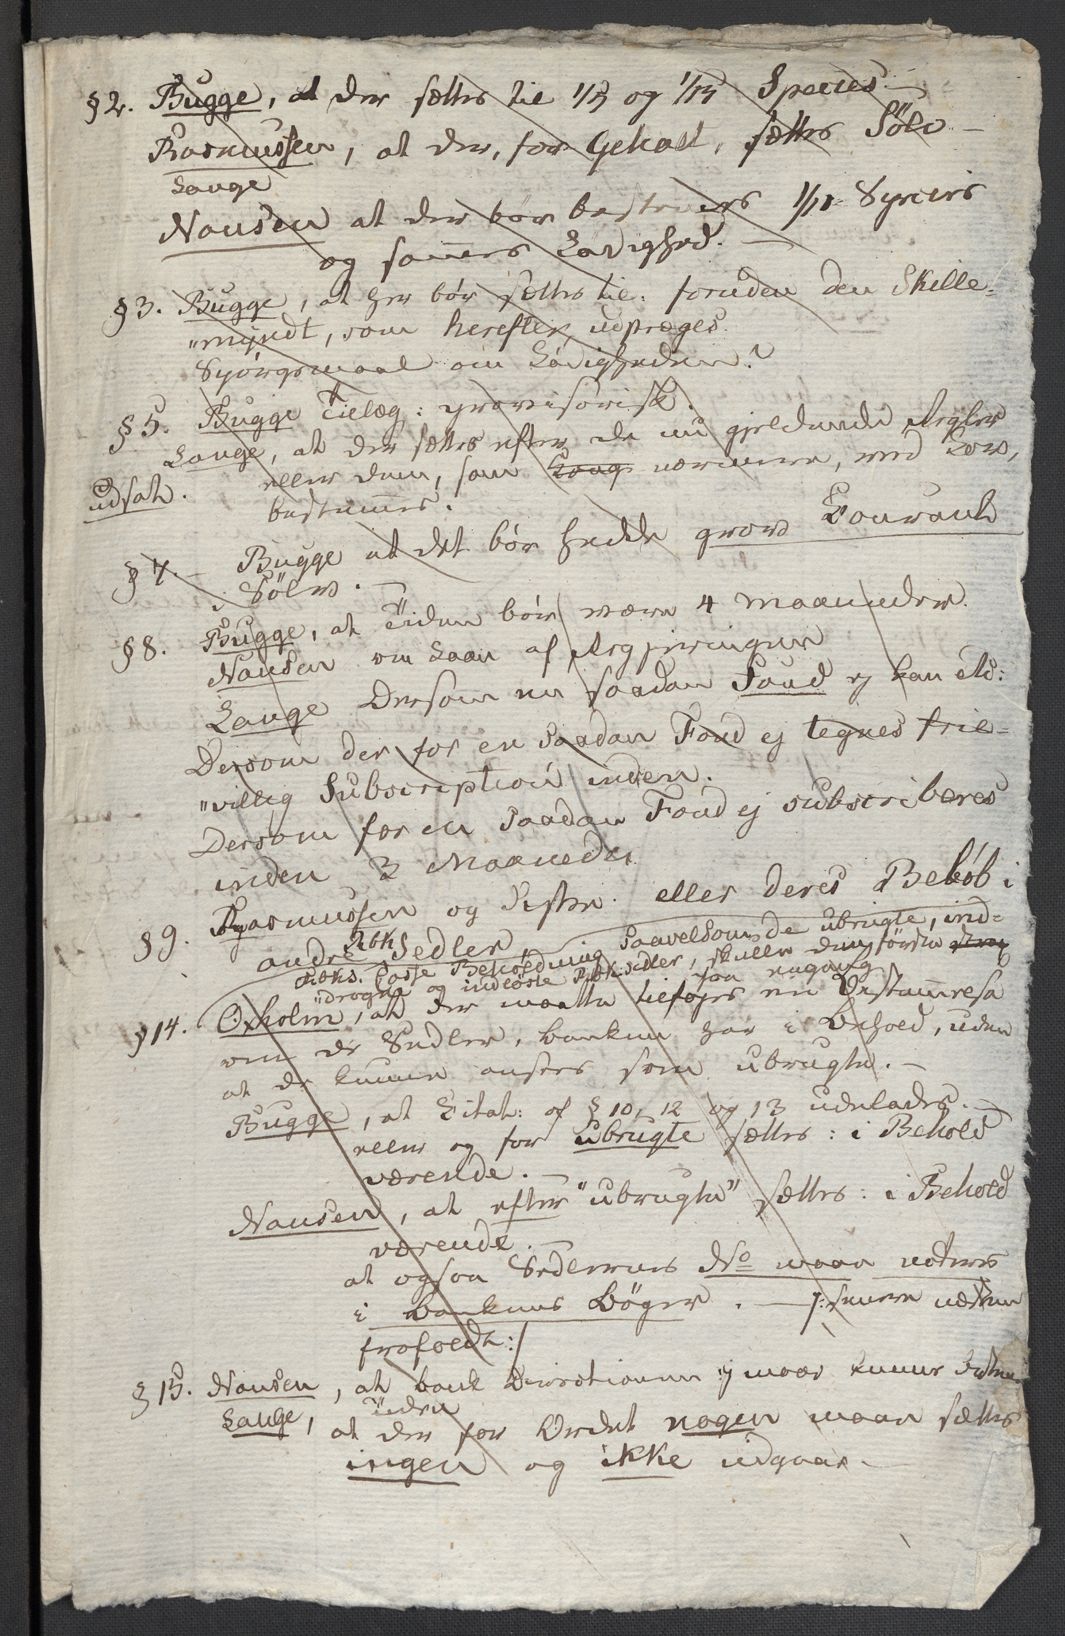 §2. Bugge, at der sættes til 1/5 og 1/15 Species. —
Rasmussen, at der, for Gehalt, sættes Sölv —
Lange
Nansen at der bør bestemes Species
og sammes Lødighed. —
§3. Bugge, at her bør sættes til: foruden den Skille-
„mÿndt, som herefter udpræges.
Spörgsmaal om Lödigheden?
§5. Bugge Tillæg: provisorisk.
Lange, at der sættes efter de nu gjeldende Regler
udsat. eller dem, som nærmere, ved Lov,
bestemmes.
§7. — Bugge at det bør hedde grov Courant
i Sölv. —
§8. Bugge, at Tiden bör være 4 Maaneder.
Nansen om Laan af Regjeringen
Lange Dersom en saadan Fond ej kan
Dersom der for en saadan Fond ej tegnes frie-
„villig Subscription inden.
Dersom for en saadan Fond ej subscriberes
inden 3 Maaneder
§9. Rasmussen og eller deres Beløb i
andre Rbk Sedler,
Saavelsom de ubrugte, ind-
Rbks. Casse Beholdning
dragne og indløste Sedler, skulle
§14. Oxholm, at der maatte tilföjes en Bestemmelse
om de Sedler, banken har i Behold, uden
at de kunne ansees som ubrugte. —
Bugge, at Citat: af § 10, 12 og 13 udelades. —
eller og for ubrugte sættes: i Behold
værende. —
Nansen, at efter "ubrugte" sættes: i Behold
værende.
at ogsaa Sedlernes No maa noteres
i Bankens Bøger. — /: senere
frafaldt :/
§15. Nansen, at bank Directionen ej maae kunne
Tiden
Lange, at der for Ordet nogen maa sættes
ingen og ikke udgaar. —